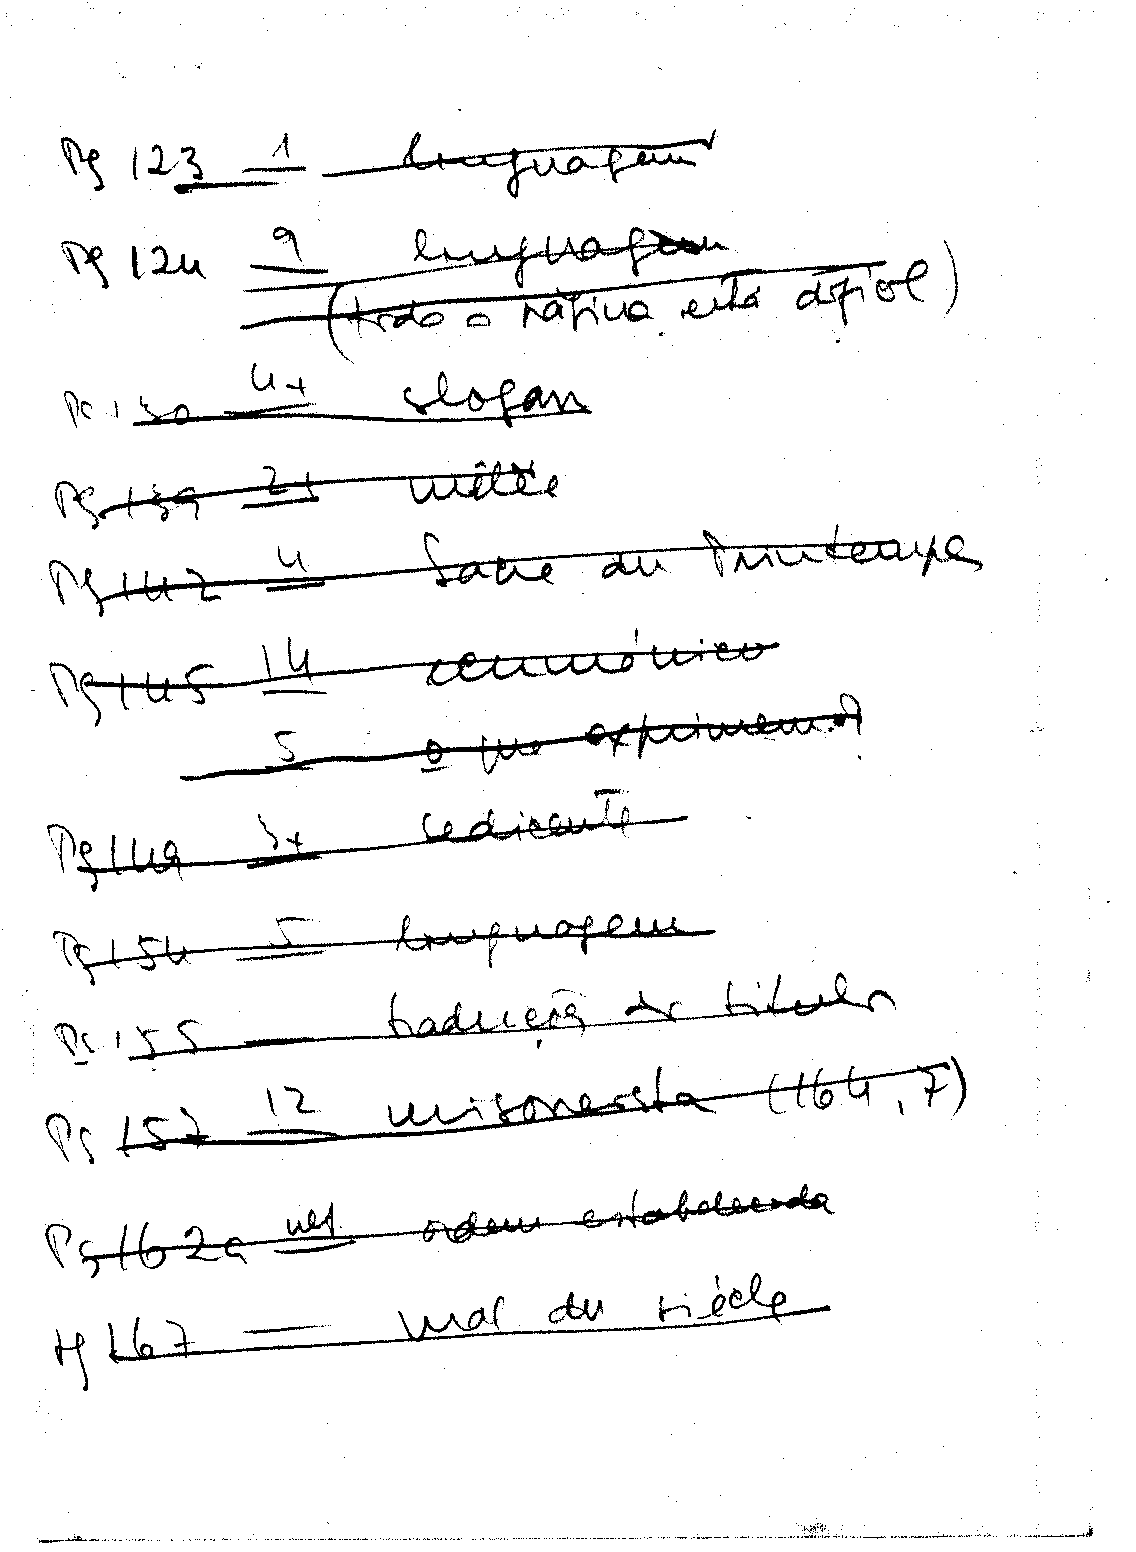 Pg 123 1 linguagem
Pg 124 9 linguagem
(toda a página está difícil)
Pg 130 4+ slogan
Pg 139 21 mêlée
Pg 142 4 Sacre du Printemps
Pg 145 14 ecuménico
5 o que exprimem?
Pg 149 3+ sedicente
Pg 154 5 linguagem
Pg 155 — tradução do título
Pg 157 12 misoneísta (164, 7)
Pg 162a ordem estabelecida
Pg 167 — mal du siècle